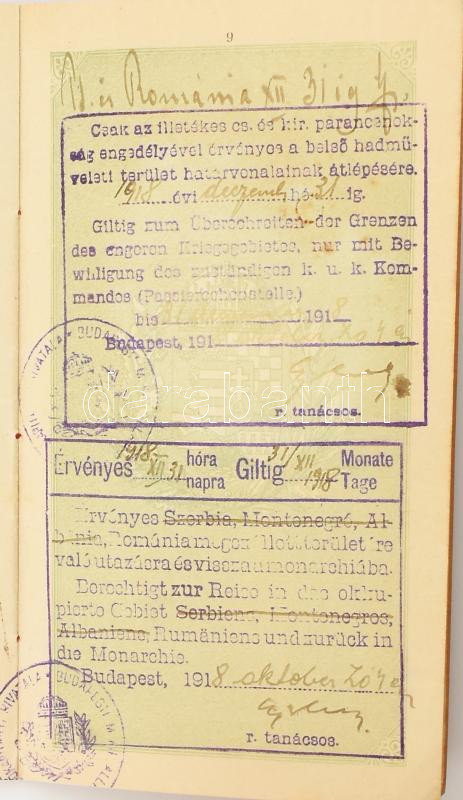 9
és Románia XII 31 ig
Csak az illetékes cs. és kir. parancsnok-
ság engedélyével érvényes a belső hadmű-
veleti terület határvonalainak átlépésére.
1918 évi deczemb hó 31 ig.
Giltig zum Überschreiten der Grenzen
des engeren Kriegsgebietes, nur mit Be-
willigung des zuständigen k. u. k. Kom-
mandos (Passierscheinstelle.)
bis 31 1918
Budapest, 191
r. tanácsos.
darabanth
Érvényes 1918 XII 31 hóra napra Giltig 31/XII 1918 Monate Tage
Érvényes Szerbia, Montenegró, Al-
bánia, Románia megszállott területére
való utazásra és vissza a monarchiába.
Berechtigt zur Reise in das okku-
pierte Gebiet Serbiens, Montenegros,
Albaniens, Rumäniens und zurück in
die Monarchie.
Budapest, 1918 oktober
r. tanácsos.